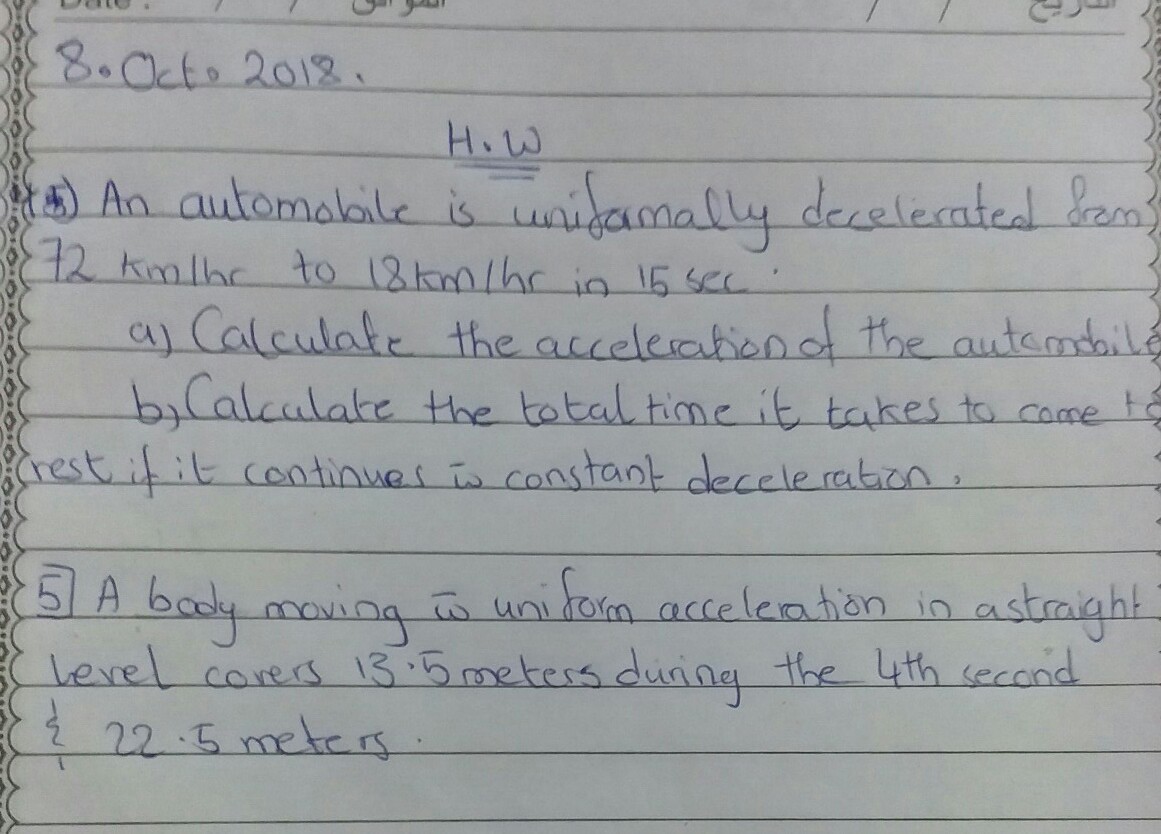 / /
8. Oct. 2018.
H.W
An automobile is uniformally decelerated from
72 km/hr to 18 km/hr in 15 sec.
a) Calculate the acceleration of the automobile
b) Calculate the total time it takes to come to
rest if it continues w̄ constant deceleration.
5 A body moving w̄ uniform acceleration in a straight
level covers 13.5 meters during the 4th second
& 22.5 meters.